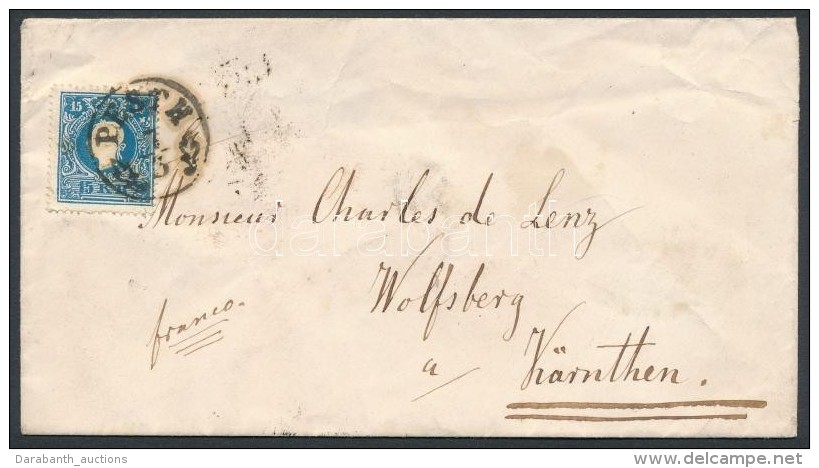 15
PESTH
15 KR
Monsieur Charles de Lenz
darabanth
Wolfsberg
franco.
a Kärnthen.
Darabanth_auctions
delcampe.net